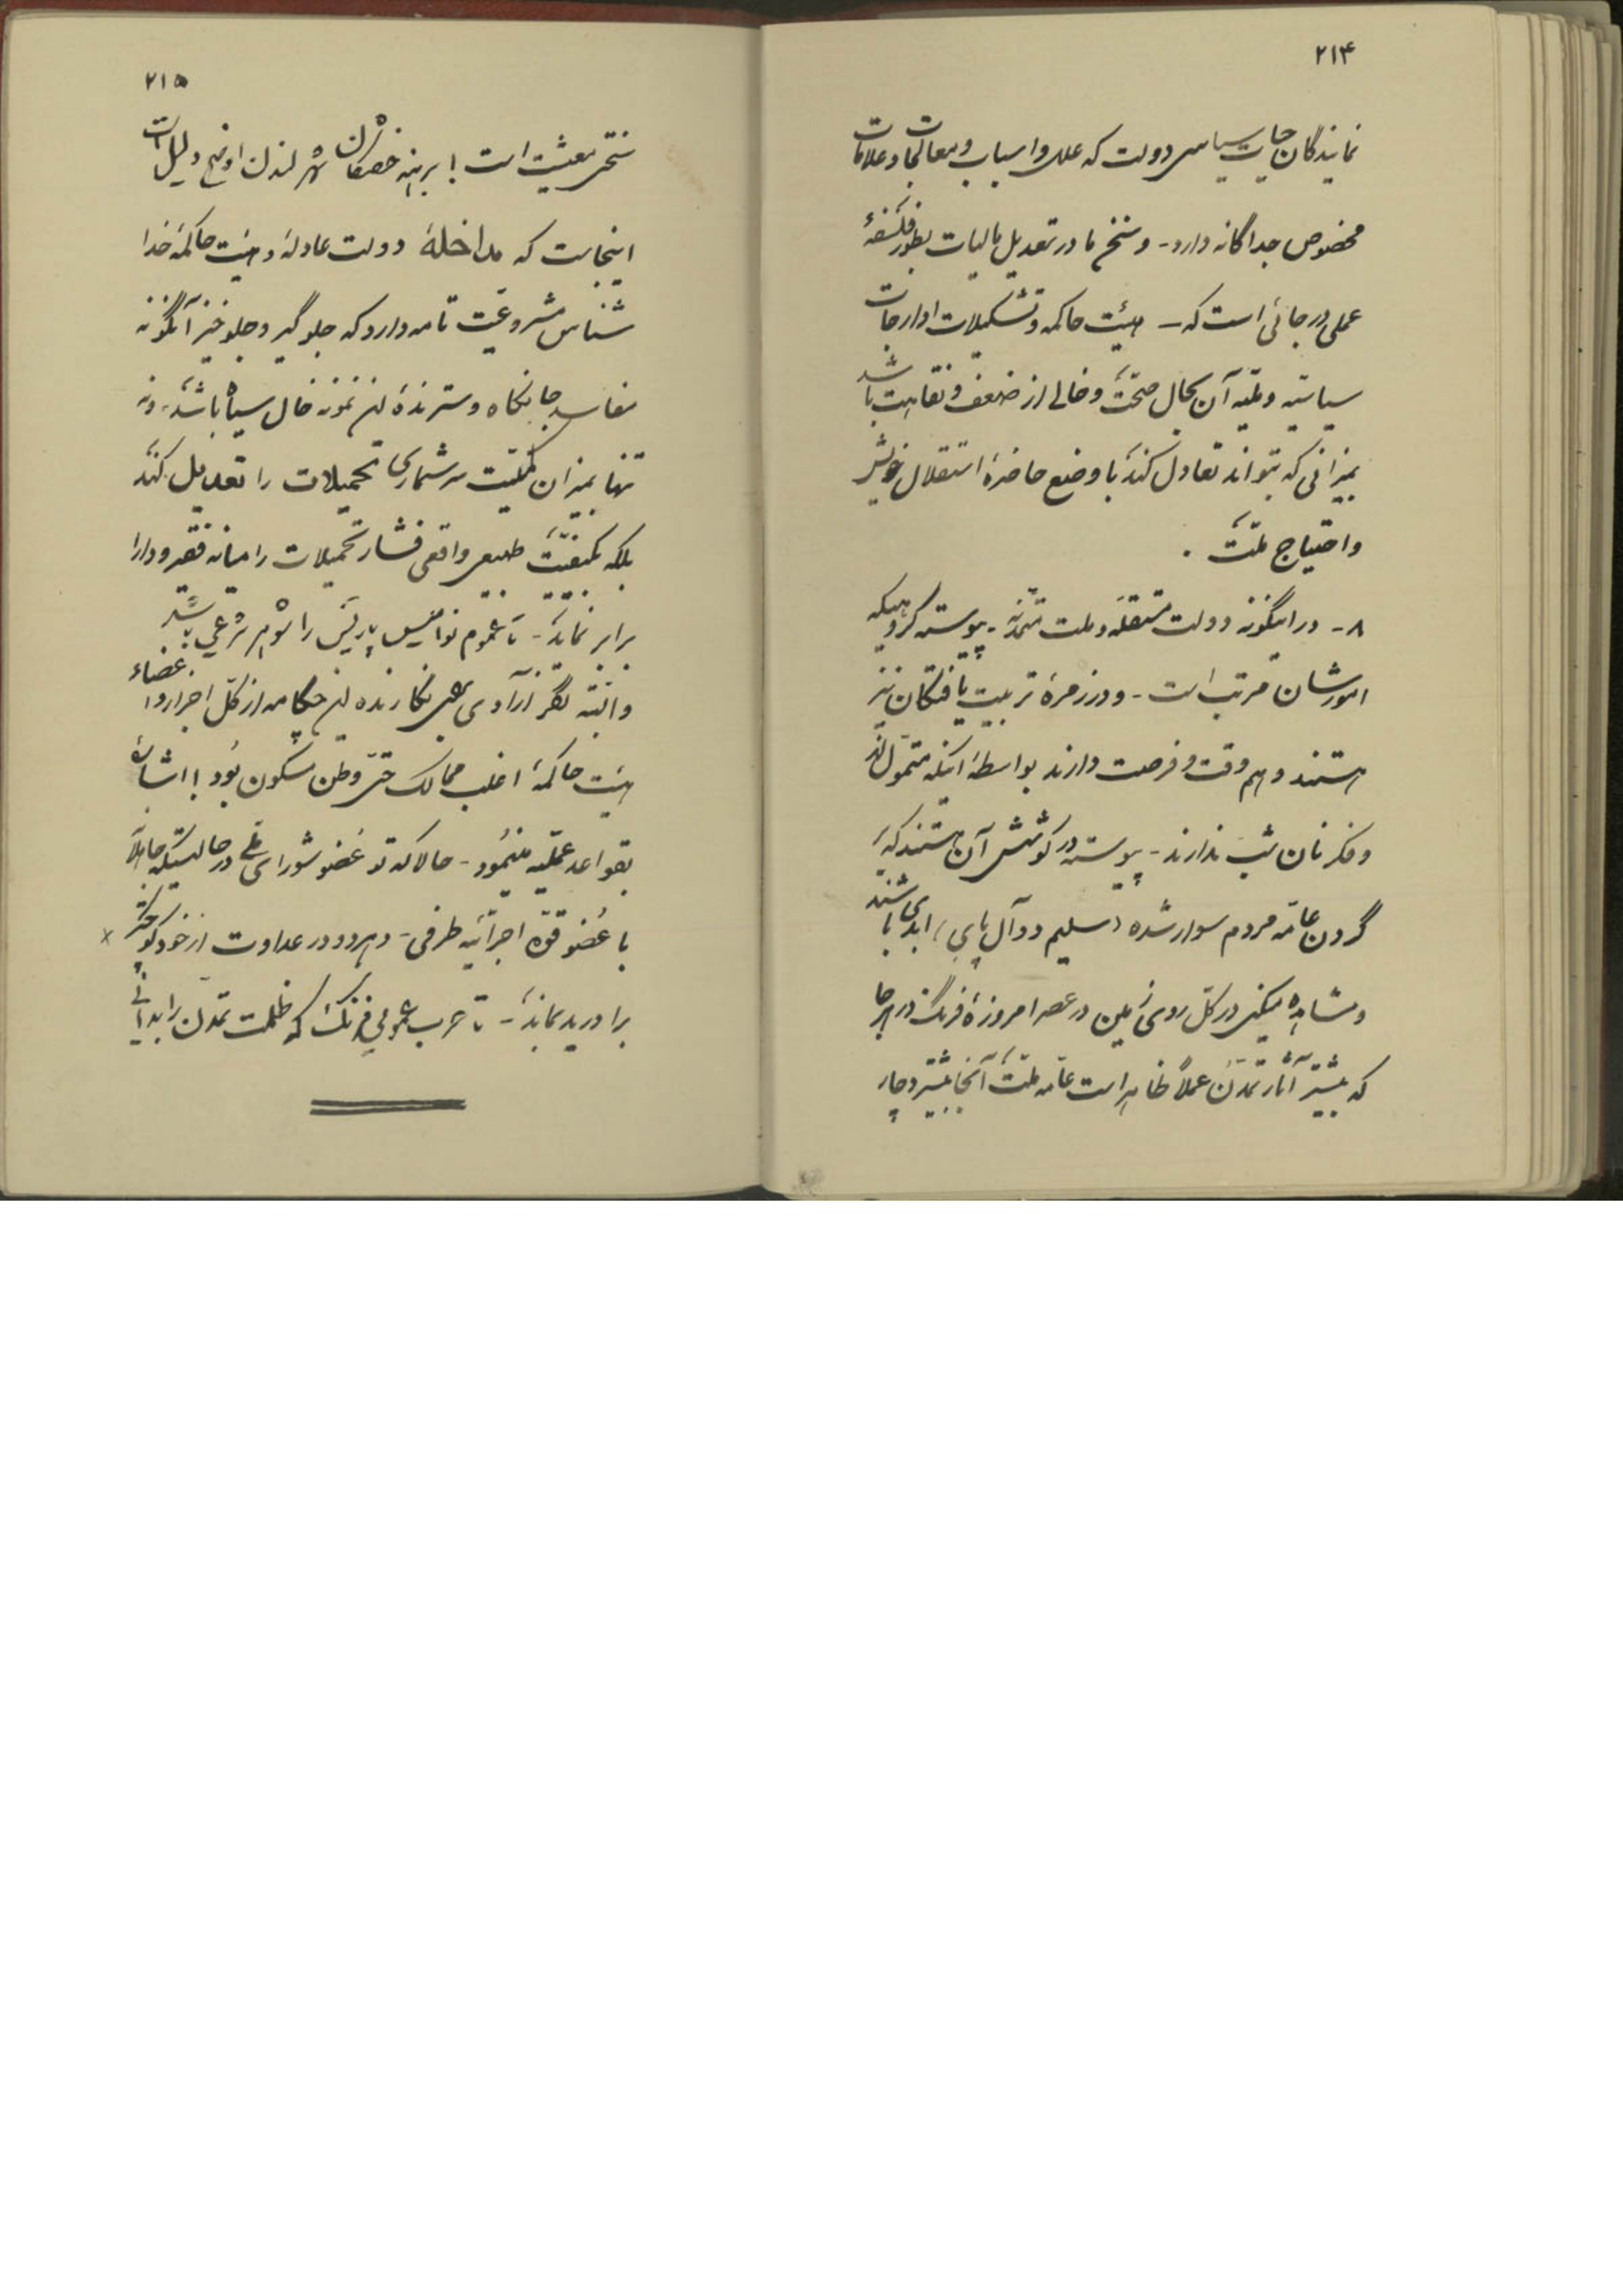 ۲۱۴
نمایندگان حیات سیاسی دولت که علل و اسباب و معالجات و علامات
مخصوص جداگانه دارد - و سخن ما در تعدیل مالیات بطور فلسفهٔ
عملی در جائی است که - هیئت حاکمه و تشکیلات ادارجات
سیاسیه و ملیه آن بحال صحت و خالی از ضعف و نقاهت باشد
بمیزانی که بتواند تعادل کند با وضع حاضرهٔ استقلال خویش
و احتیاج ملت .
۸- در اینگونه دولت مستقله و ملت متمدنه - پیوسته گروهیکه
امورشان مرتب است - و در زمرهٔ تربیت یافتگان نیز
هستند و هم وقت و فرصت دارند بواسطهٔ اینکه متمول‌اند
و فکر نان شب ندارند - پیوسته در کوشش آن هستند که بر
گردن عامه مردم سوار شده (سلیم دوآل پای) ابدی باشند
و مشاهده میکنی در کل روی زمین در عصر امروزهٔ فرنگ در هر جا
که بیشتر آثار تمدن عملاً ظاهر است عامه ملت آنجا بیشتر دچار
۲۱۵
سختی معیشت است ! برهنه خصمان شهر لندن اوضح دلیل است
اینجاست که مداخلهٔ دولت عادله و هیئت حاکمهٔ خدا
شناس مشروعیت تامه دارد که جلوگیر و جلو خیز آنگونه
مفاسد جانکاه و سترندهٔ این نمونه خال سیاه باشد، و نه
تنها بمیزان کمّیت سرشماری تحمیلات را تعدیل کند
بلکه بکیفیت طبیعی واقعی فشار تحمیلات را میانه فقیر و دارا
برابر نماید - تا عموم نوامیس پاریس را شوهر شرعی باشد
و البته نگر آزادی نگارنده این چکامه از کل اجزا و اعضاء
هیئت حاکمهٔ اغلب ممالک حتی وطن مسکون بود ! اشارهٔ
بقواعد عملیه مینمود - حالا که تو عضو شورای ملی در حالیستیکه جاهلاً
با عضو قوه اجرائیه طرفی - و هر دو در عداوت از خود کوچکتر ×
برادرید بماند - تا حرب عمومی فرنگ که ظلمت تمدن را بدانی